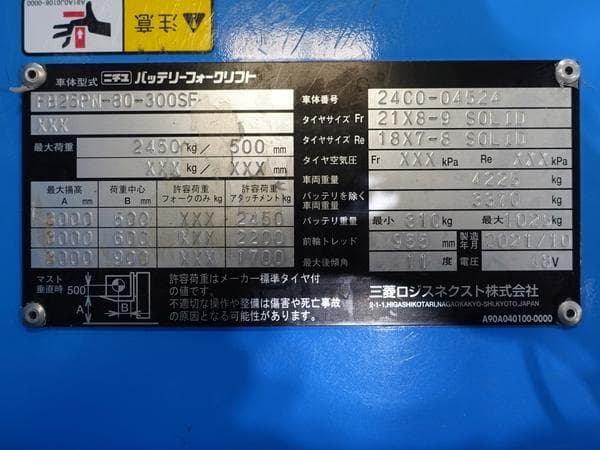 A91A0J0108-0000
注意
車体型式 ニチユ バッテリーフォークリフト
FB25PN-80-300SF
XXX
最大荷重 2450 kg/ 500 mm
XXX kg/ XXX mm
最大揚高 A mm 荷重中心 B mm 許容荷重 フォークのみ kg 許容荷重 アタッチメント kg
3000 500 XXX 2450
3000 600 XXX 2200
3000 900 XXX 1700
マスト垂直時 500 A B
許容荷重はメーカー標準タイヤ付
の値です。
不適切な操作や整備は傷害や死亡事故
の原因となる可能性があります。
車体番号 24C0-04524
タイヤサイズ Fr 21X8-9 SOLID
タイヤサイズ Re 18X7-8 SOLID
タイヤ空気圧 Fr XXX kPa Re XXX kPa
車両重量 4225 kg
バッテリを除く車両重量 kg
バッテリ重量 最小 810 kg 最大 kg
前輪トレッド 955 mm 製造年月 2021/10
最大後傾角 11 度 電圧 48 V
三菱ロジスネクスト株式会社
2-1-1,HIGASHIKOTARI,NAGAOKAKYO-SHI,KYOTO,JAPAN
A90A040100-0000